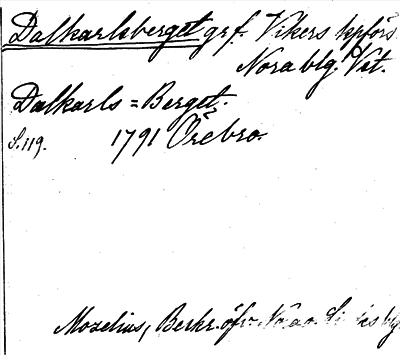 Dalkarlsberget grf. Vikers kpförs.
Nora blg. Vst.
Dalkarls=Berget.
S. 119. 1791 Örebro.
Mozelius, Berkr. öfv. Nora o.